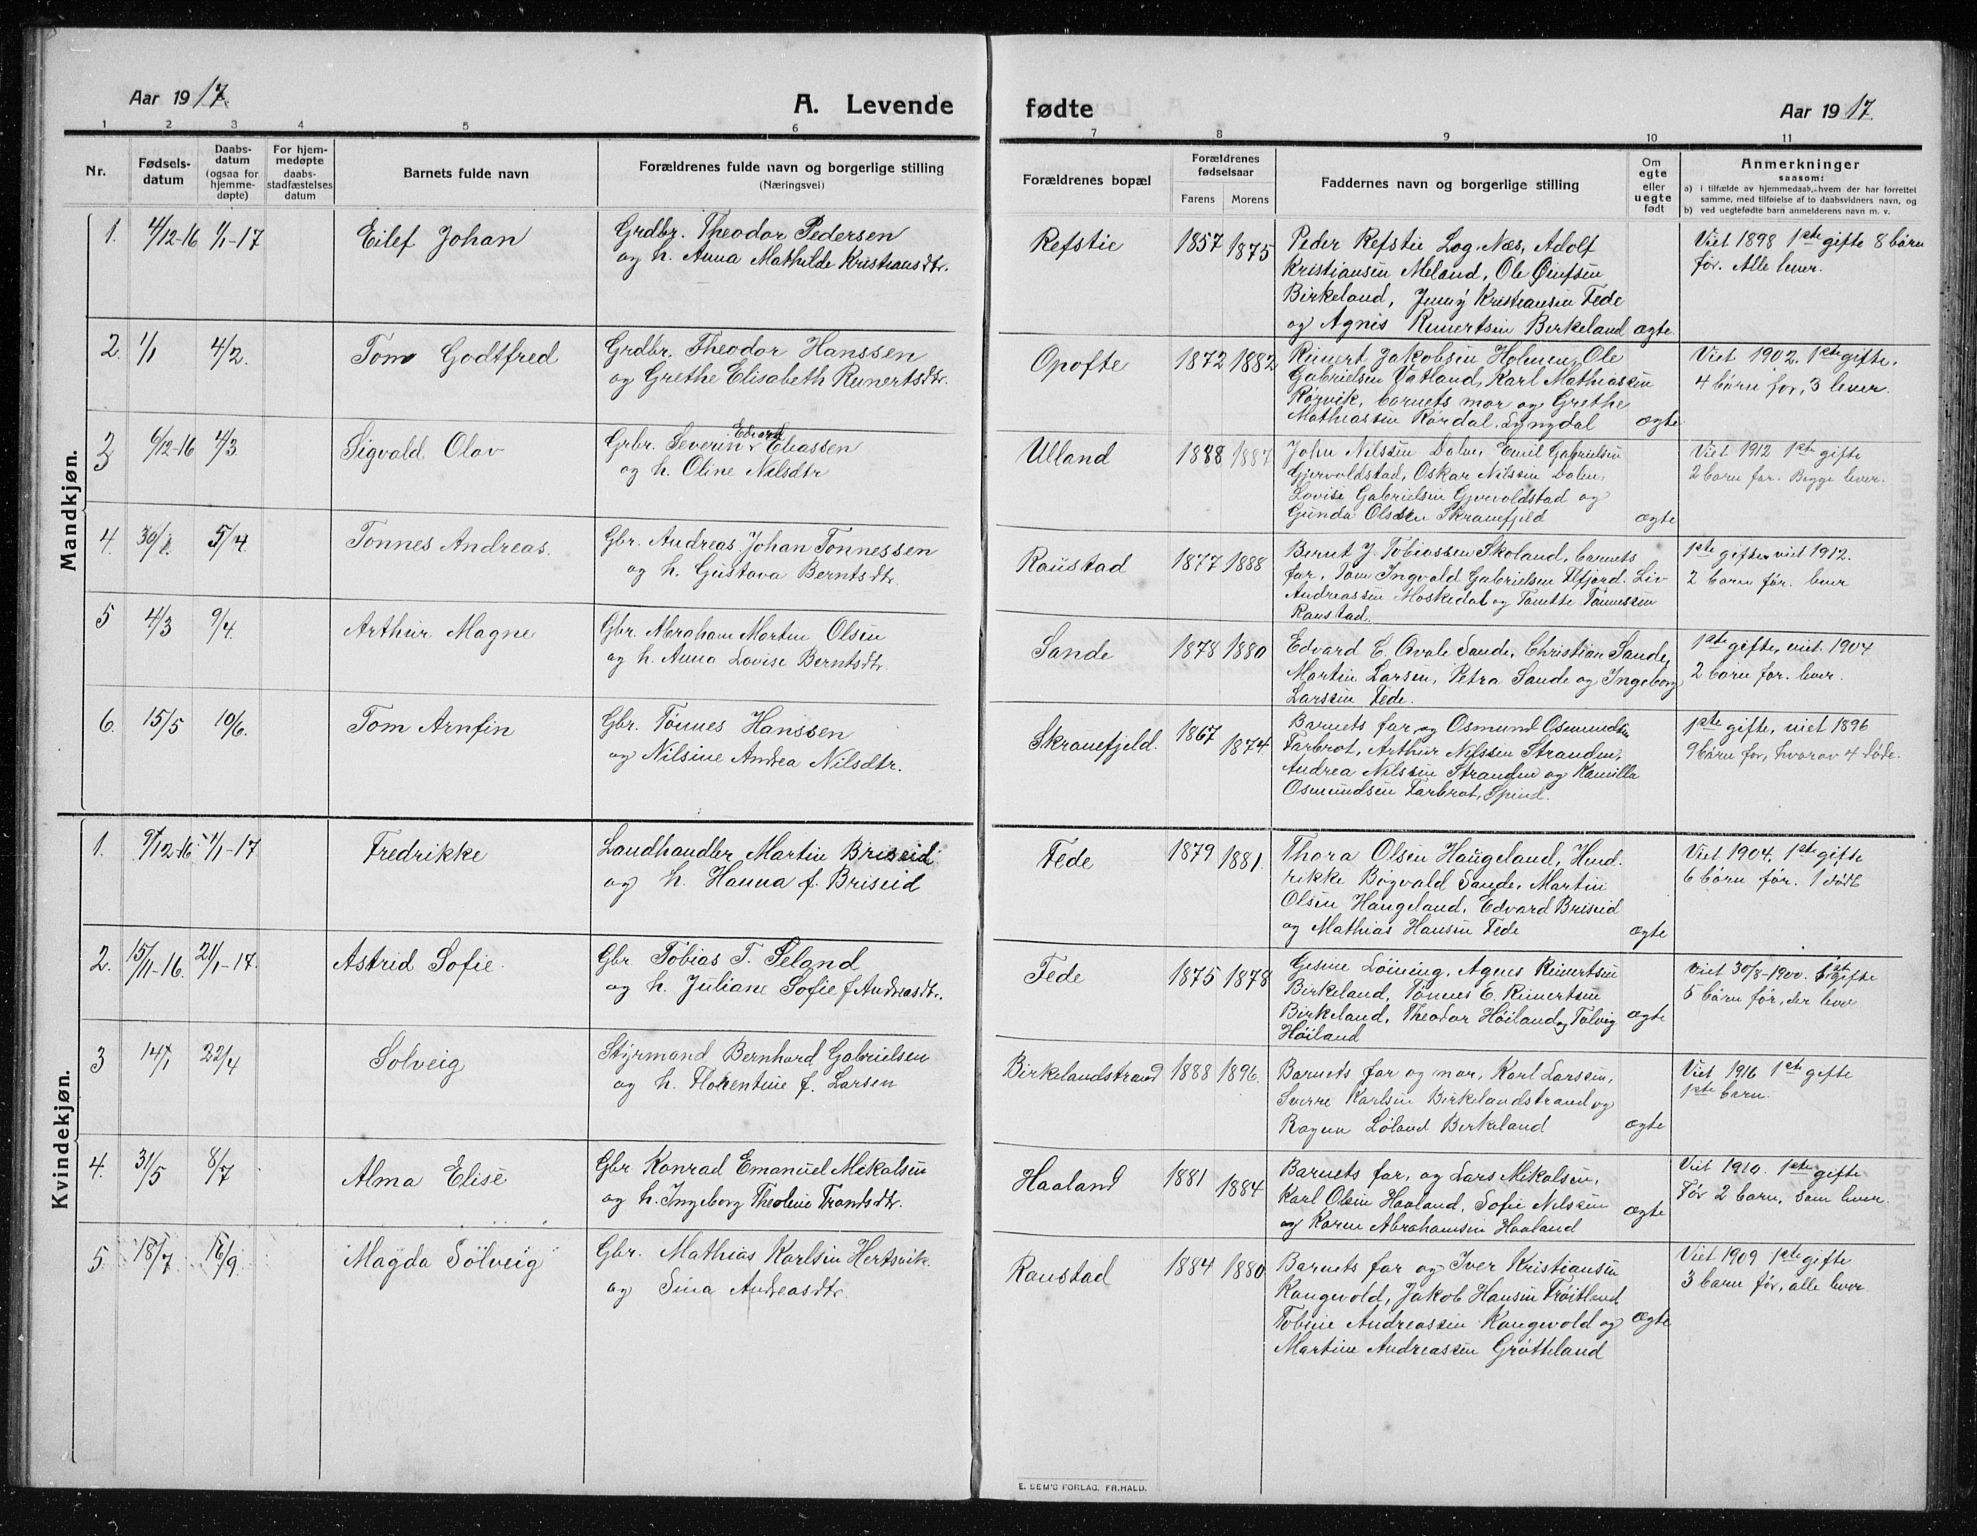 Aar 1917.
A. Levende
1 2 3 4 5 6
Nr.
Fødsels-
datum
Daabs-
datum
(ogsaa for
hjemme-
døpte)
For hjem-
medøpte
daabs-
stadfæstelses
datum
Barnets fulde navn
Forældrenes fulde navn og borgerlige stilling
(Næringsvei)
Mandkjøn.
1. 4/12-16 1/1-17 Eilef Johan Grdbr. Theodor Pedersen
og h. Anna Mathilde Kristiansdtr.
2. 1/1 4/2. Tom Godtfred Grdbr. Theodor Hanssen
og Grethe Elisabeth Reinertsdtr.
3 6/12-16 4/3 Sigvald Olav Grbr. Severin Edvard Eliassen
og h. Oline Nilsdtr
4. 30/1. 5/4. Tønnes Andreas. Gbr. Andreas Johan Tønnessen
og h. Gustava Berntsdtr.
5 4/3 9/4. Arthur Magne Gbr. Abraham Martin Olsen
og h. Anna Lovise Berntsdtr
6. 15/5 10/6. Tom Arnfin Gbr. Tønnes Hanssen
og Nilsine Andrea Nilsdtr.
Kvindekjøn.
1. 9/12-16 1/1-17 Fredrikke Landhandler Martin Briseid
og h. Hanna f. Briseid
2. 15/11-16. 21/1-17. Astrid Sofie. Gbr Tobias T. Seland
og h. Juliane Sofie f Andreasdtr.
3 14/1 22/4 Solveig Styrmand Bernhard Gabrielsen
og h. Florentine f. Larsen
4. 31/5 8/7 Alma Elise Gbr Konrad Emanuel Mikalsen
og h. Ingeborg Theoline Trondsdtr.
5. 18/7 16/9 Magda Sölveig Gbr. Mathias Karlsen Hertsvik
og Sina Andreasdtr.
fødte
Aar 1917
7 8 9 10 11
Forældrenes bopæl
Forældrenes
fødselsaar
Farens Morens
Faddernes navn og borgerlige stilling
Om
egte
eller
uegte
født
Anmerkninger
saasom:
a) i tilfælde av hjemmedaab, hvem der har forrettet
samme, med tilføielse af to daabsvidners navn, og
b) ved uegtefødte barn anmelderens navn m. v.
Refstie 1857 1875 Peder Refstie Log Næs, Adolf
Kristiansen Meland, Ole
Birkeland, Jenny Kristiansen Fede
og Agnes Reinertsen Birkeland ægte
Viet 1898 1ste gifte 8 børn
før. Alle lever.
Opofte 1872 1882 Reinert Jakobsen Holmen, Ole
Gabrielsen Vatland, Karl Mathiassen
Rørvik, barnets mor og Grethe
Mathiassen Rørdal. Lyngdal ægte
Viet 1902. 1ste gifte.
4 børn før, 3 lever.
Ulland 1888 1887 John Nilsen Dalen, Emil Gabrielsen
Gjervoldstad, Oskar Nilssen Dalen,
Lovise Gabrielsen Gjervoldstad og
Gunda Olsen Skranefjeld ægte
Viet 1912 1ste gifte
2 børn før. Begge lever.
Raustad 1877 1888 Bernt J. Tobiassen Skoland, barnets
far, Tom Ingvald Gabrielsen Ilfjord. Liv
Andreassen Moskedal og Tonette Tønnessen
Raustad.
1ste gifte viet 1912.
2 børn før. lever
Sande 1878 1880 Edvard E. Øvale Sande, Christian Sande,
Martin Larsen, Petra Sande og Ingeborg
Larssen Fede.
1ste gifte, viet. 1904
2 børn før. lever.
Skranefjeld. 1867 1874 Barnets far og Osmund Osmundsen
Farbrot, Arthur Nilssen Stranden,
Andrea Nilssen Stranden og Kamilla
Osmundsen Farbrot, Spind.
1ste gifte, viet 1896
9 børn før, hvorav 4 døde.
Fede 1879 1881. Thora Olsen Haugeland, Hend-
rikke Bøgvald Sande, Martin
Olsen Haugeland, Edvard Briseid
og Mathias Hansen Fede ægte
Viet 1904. 1ste gifte
6 børn før. 1 født
Fede 1875 1878 Gesine Løining, Agnes Reinertsen
Birkeland, Tønnes E. Reinertsen
Birkeland, Theodor Høiland og Tolvig
Høiland ægte
viet 30/8-1900. 1ste gifte
5 børn før, der lever
Birkelandstrand 1888 1896. Barnets far og mor, Karl Larssen,
Sverre Karlsen Birkelandstrand og
Ragna Løland Birkeland ægte
Viet 1916 1ste gifte
1ste barn.
Haaland 1881 1884 Barnets far, og Lars Mikalsen,
Karl Olsen Haaland, Sofie Nilsen
og Karen Abrahamsen Haaland ægte
Viet 1910. 1ste gifte
Før 2 barn, som lever.
Raustad 1884 1880 Barnets far og Iver Kristiansen
Kongevold, Jakob Hansen Frøitland
Tobine Andreassen Kongevold og
Martine Andreassen Grøtteland ægte
Viet 1909 1ste gifte
3 barn før, alle lever
E. SEM'S FORLAG, FR.HALD.